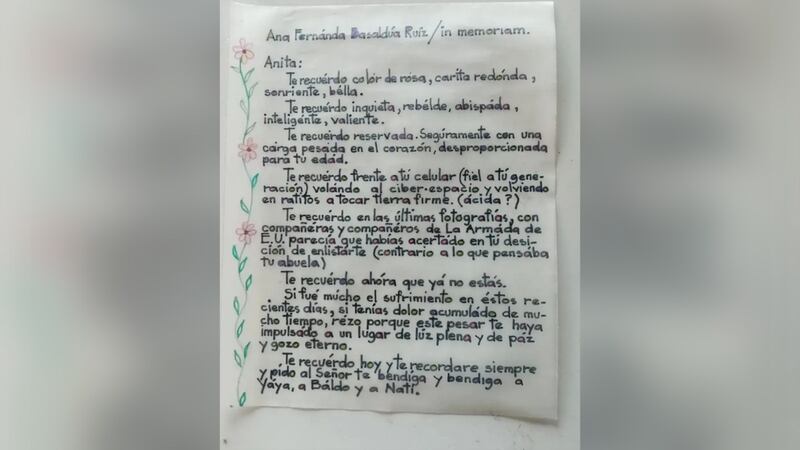 Ana Fernánda Basaldúa Ruíz/in memoriam.
Anita:
Te recuérdo colór de rósa, caríta redónda,
sonriénte, bélla.
Te recuérdo inquiéta, rebélde, abispáda,
inteligénte, valiente.
Te recuerdo reservada. Segúramente con una
cárga pesada en el corazón, desproporcionada
pára tú edád.
Te recuérdo frente a tú celular (fiel a tú gene-
ración) volándo al ciber-espacio y volviendo
en ratítos a tocar tierra firme. (ácida?)
Te recuérdo en las últimas fotografías, con
compañeras y compañéros de La Armáda de
E.U. parecía que habías acertádo en tú desi-
ción de enlistárte (contrario a lo que pensába
tu abuela)
Te recuérdo ahora que yá no estás.
Si fué múcho el sufrimiento en éstos re-
cientes días, si tenías dolor acumuládo de mu-
cho tiempo, rézo porque este pesar te haya
impulsádo a un lugar de lúz plena y de páz
y gozo eterno.
Te recuérdo hoy y te recordare siempre
y pído al Señor te bendíga y bendiga a
Yáya, a Báldo y a Natí.